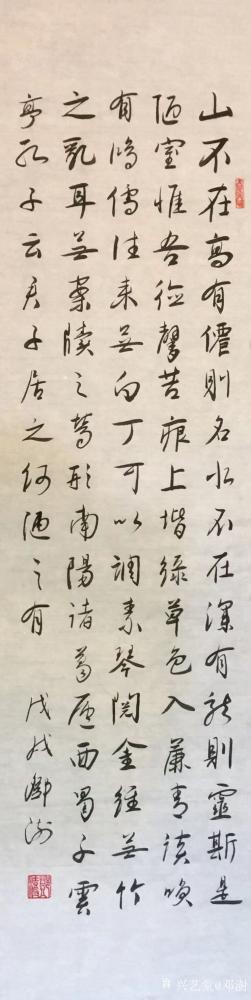 山不在高有僊則名水不在深有龍則靈斯是
陋室惟吾德馨苔痕上堦綠草色入簾青談笑
有鴻儒往来無白丁可以調素琴閱金經無竹
之亂耳無案牘之勞形南陽諸葛廬西蜀子雲
亭孔子云君子居之何陋之有 戊戌鄧澍
兴艺堂@邓澍